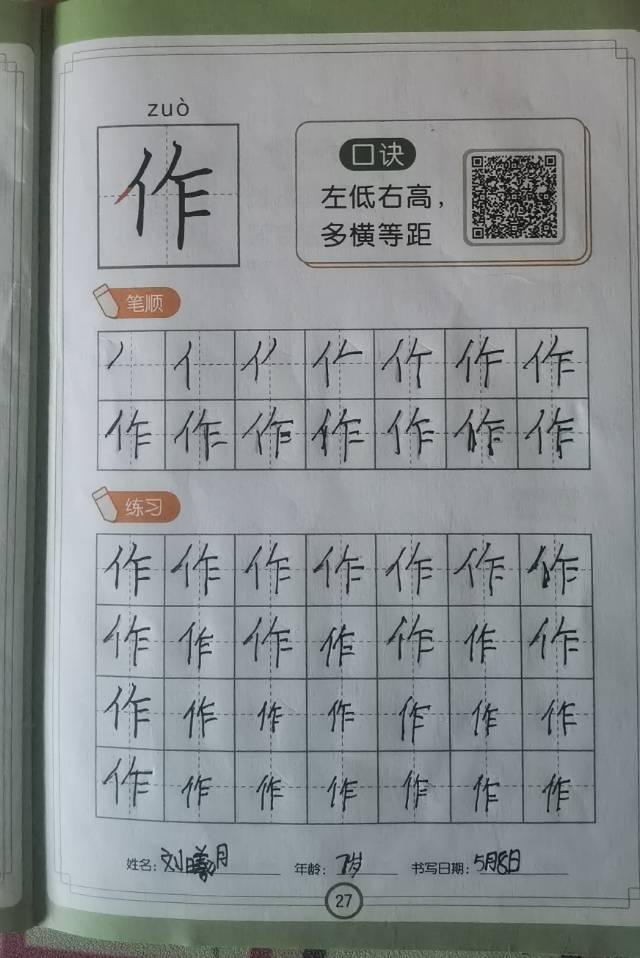 zuò
作
口诀
左低右高，
多横等距
笔顺
丿 亻 作
作 作 作 作 作 作 作
练习
作 作 作 作 作 作 作
作 作 作 作 作 作 作
作 作 作 作 作 作 作
作 作 作 作 作 作 作
姓名：刘曦月 年龄：7岁 书写日期：5月8日
27